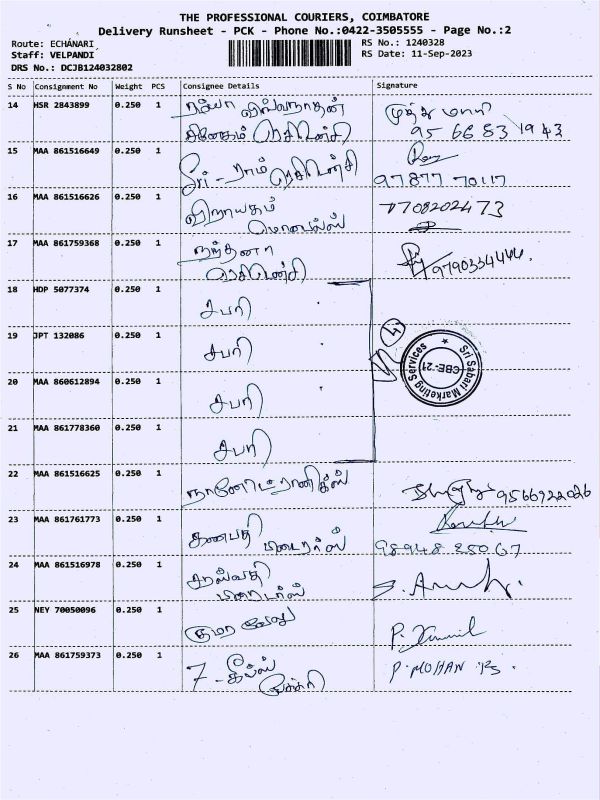 THE PROFESSIONAL COURIERS, COIMBATORE
Delivery Runsheet - PCK - Phone No.:0422-3505555 - Page No.:2
Route: ECHANARI RS No.: 1240328
Staff: VELPANDI RS Date: 11-Sep-2023
DRS No.: DCJB124032802
S No Consignment No Weight PCS Consignee Details Signature
14 HSR 2843899 0.250 1 முத்து மாரி
ரெசிடென்சி 95 66 83 1943
15 MAA 861516649 0.250 1 Sri - ராம்
ரெசிடென்சி 97877 70117
16 MAA 861516626 0.250 1 விநாயகம் 7708202473
மொபைல்ஸ்
17 MAA 861759368 0.250 1 நந்தனா
ரெசிடென்சி 9790334444.
18 HDP 5077374 0.250 1 சபரி
19 JPT 132086 0.250 1 சபரி
4
Sri Sabari Marketing Services
CBE-21
20 MAA 860612894 0.250 1 சபரி
21 MAA 861778360 0.250 1 சபரி
22 MAA 861516625 0.250 1 9566922026
23 MAA 861761773 0.250 1 கணபதி
98948 25067
24 MAA 861516978 0.250 1 சரஸ்வதி
25 NEY 70050096 0.250 1 குமரவேலு
26 MAA 861759373 0.250 1 7 - ஹில்ஸ் P. MOHAN
பேக்கரி